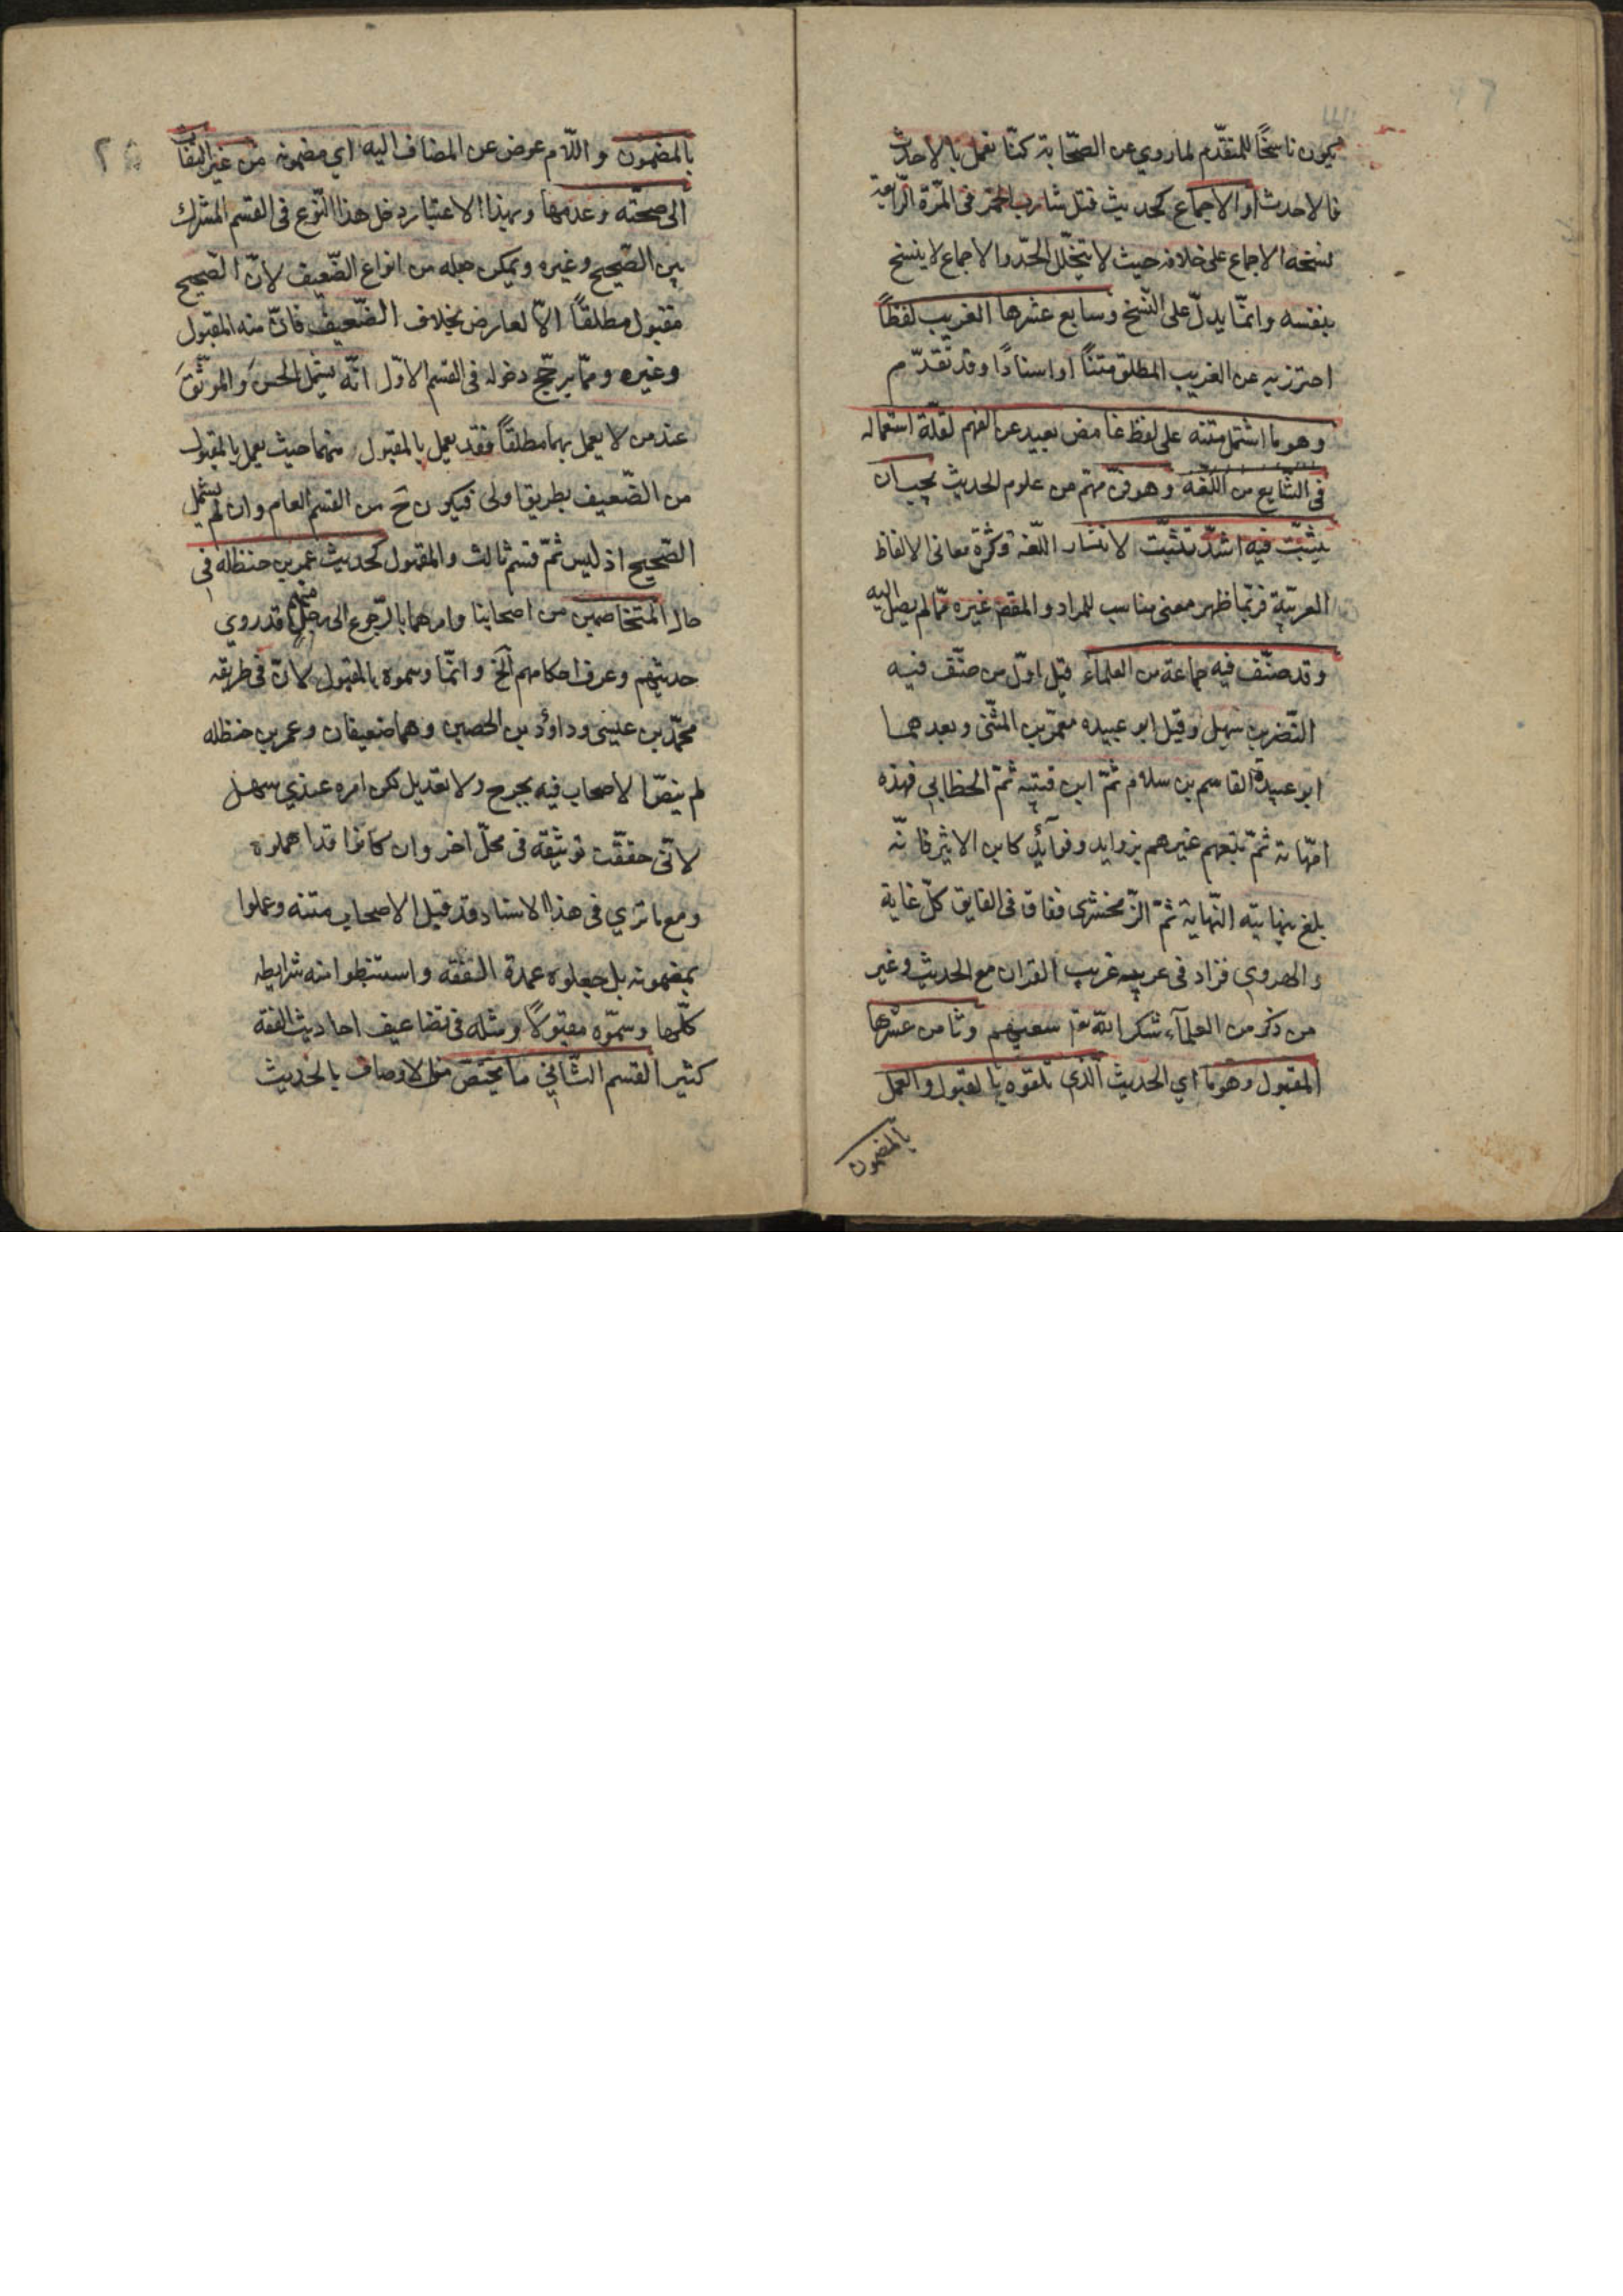 يكون ناسخًا للمتقدّم لما روي عن الصّحابة كنّا نعمل بالاحدث
فالاحدث او الاجماع كحديث قتل شارب الخمر فى المرّة الرّابعة
نسخه الاجماع على خلافه حيث لا يتخلّل الحدّ والاجماع لا ينسخ
بنفسه وانمّا يدلّ على النّسخ وسابع عشرها الغريب لفظاً
احترز به عن الغريب المطلق متنًا او اسنادًا وقد تقدّم
وهو ما اشتمل متنه على لفظ غامض بعيد عن الفهم لقلّة استعماله
فى الشّايع من اللّغة وهو فنّ مهّم من علوم الحديث يجب ان
يتثبّت فيه اشدّ تثبّت لانتشار اللّغة وكثرة معانى الالفاظ
العربيّة فربّما ظهر معنى مناسب للمراد والمقصد غيره ممّا لم يصل اليه
وقد صنّف فيه جماعة من العلماء قيل اوّل من صنّف فيه
النّضر بن شميل وقيل ابو عبيده معمّر بن المثنّى وبعدهما
ابو عبيدة القاسم بن سلام ثمّ ابن قتيبه ثمّ الخطابي فهذه
امّهاته ثمّ تبعهم غيرهم بزوايد وفوائد كابن الاثير فانّه
بلغ بنهايته النّهاية ثمّ الزّمخشرى ففاق فى الفايق كلّ غاية
والهروي فزاد فى غريبه غريب القران مع الحديث وغير
من ذكر من العلمآء شكر الله تع سعيهم وثامن عشرها
المقبول وهو ما اي الحديث الّذى تلقوه بالقبول والعمل
بالمضمون
٢٥
بالمضمون واللّام عوض عن المضاف اليه اي مضمونه من غير التفات
الى صحّته وعدمها وبهذا الاعتبار دخل هذا النّوع فى القسم المشترك
بين الصّحيح وغيره ويمكن جعله من انواع الضّعيف لانّ الصّحيح
مقبول مطلقًا الّا لعارض بخلاف الضّعيف فانّ منه المقبول
وغيره وممّا يرجّح دخوله فى القسم الاوّل انّه يشمل الحسن والموثّق
عند من لا يعمل بهما مطلقًا فقد يعمل بالمقبول منهما حيث يعمل بالمقبول
من الضّعيف بطريق اولى فيكون ح من القسم العام وان لم يشمل
الصّحيح اذ ليس ثمّ قسم ثالث والمقبول كحديث عمر بن حنظله فى
حال المتخاصمين من اصحابنا وامرهما بالرّجوع الى رجل منهم قد روي
حديثهم وعرف احكامهم الخ وانمّا وسموه بالمقبول لانّ فى طريقه
محمّد بن عيسى وداؤد بن الحصين وهما ضعيفان وعمر بن حنظله
لم ينصّ الاصحاب فيه بجرح ولا تعديل لكن امره عندي سهل
لانّى حقّقت توثيقه فى محلّ اخر وان كانوا قد اهملوه
ومع ما تري فى هذا الاسناد وقد قبل الاصحاب متنه وعملوا
بمضمونه بل جعلوه عمدة التفقه واستنبطوا منه شرايطه
كلّها وسمّوه مقبولًا ومثله فى تضاعيف احاديث الفقه
كثير القسم الثّاني ما يختصّ من الاوصاف بالحديث